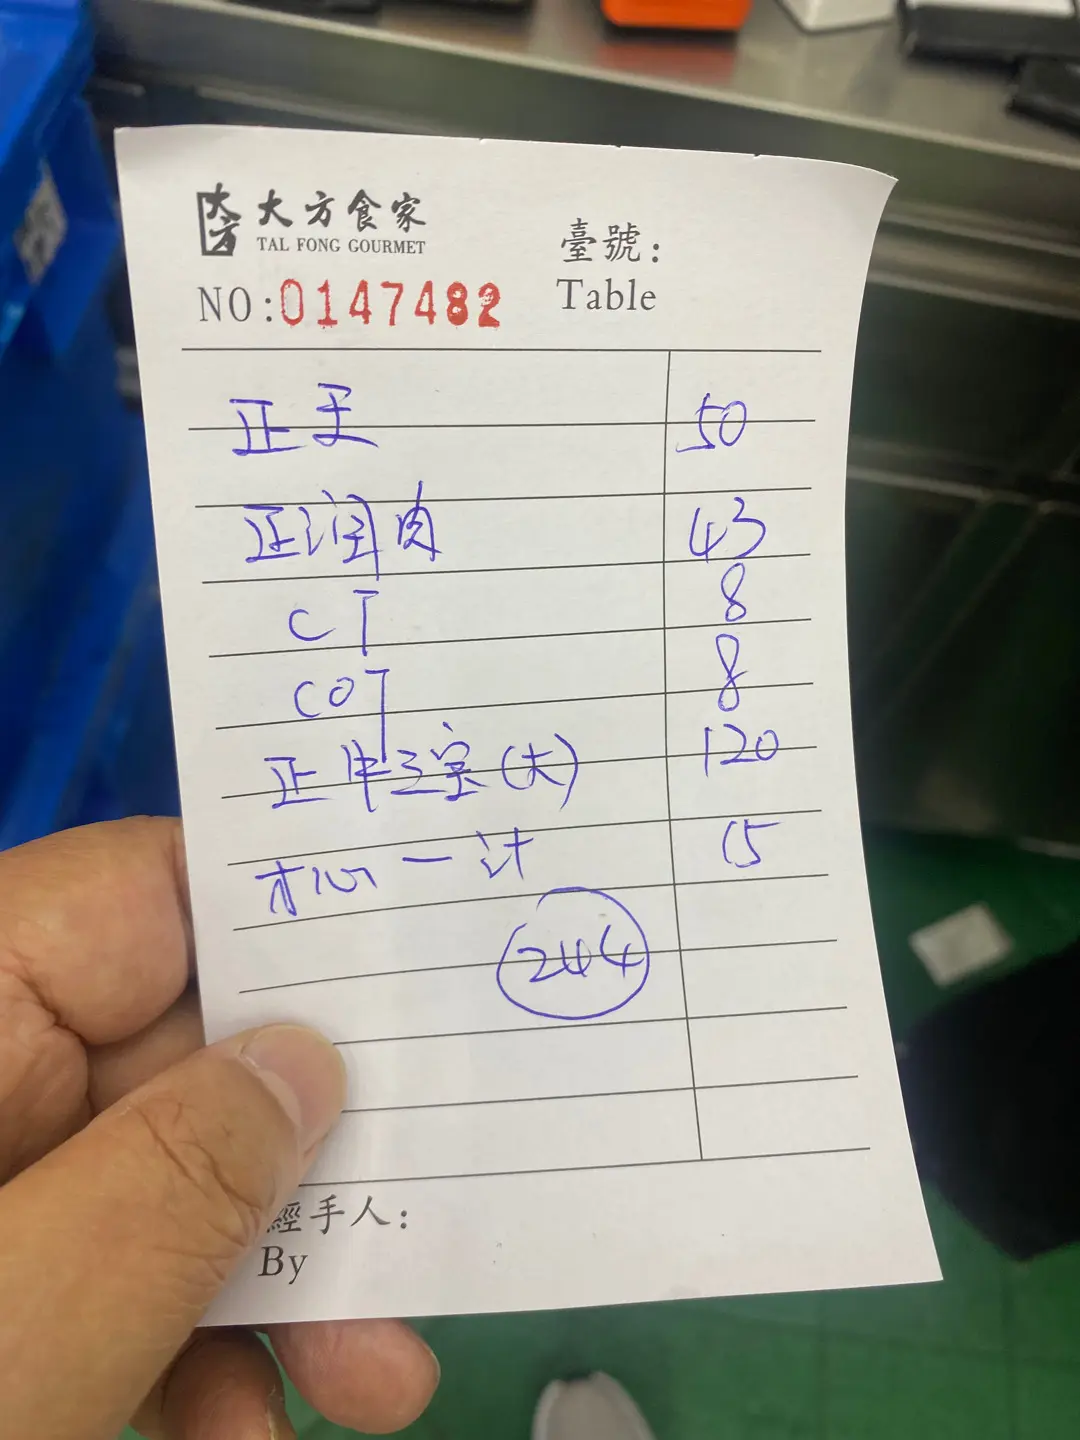 大方 大方食家
TAI FONG GOURMET
臺號:
Table
NO:0147482
正王 50
正润肉 43
CT 8
COT 8
正牛三宝(大) 120
一计 15
244
經手人:
By